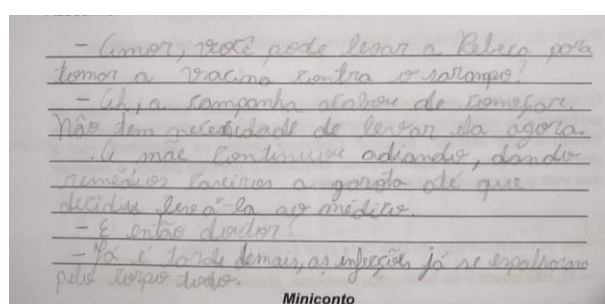 — Amor, você pode levar a Rebeca para
tomar a vacina contra o sarampo?
— Ah, a campanha acabou de começar.
Não tem necessidade de levar ela agora.
A mãe continuou adiando, dando
remédios caseiros a garota até que
decidiu levá-la ao médico.
— E então doutor?
— Já é tarde demais, as infecções já se espalharam
pelo corpo todo.
Miniconto